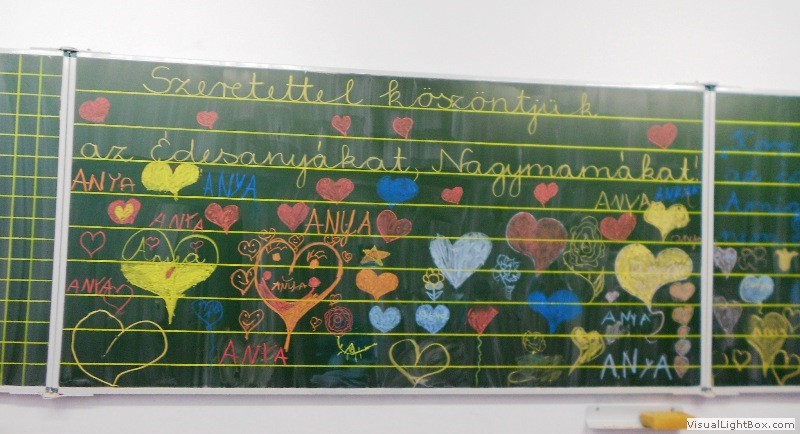 Szeretettel köszöntjük
az Édesanyákat, Nagymamákat!
ANYA ANYA ANYA
ANYA ANYA
Anya
ANYA ANYA
ANYA
ANYA ANYA
VisualLightBox.com